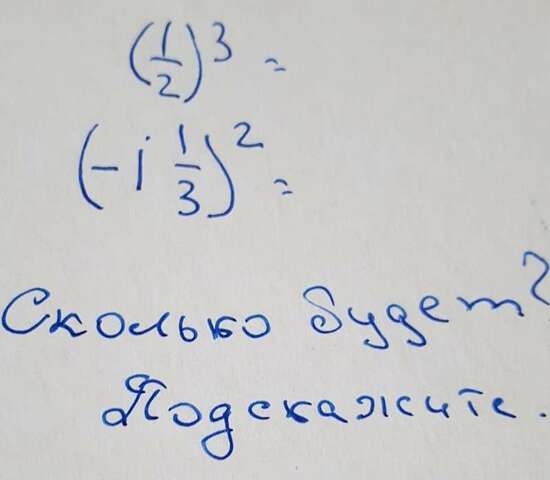 (1/2)³ =
(-1 1/3)² =
Сколько будет?
Подскажите.